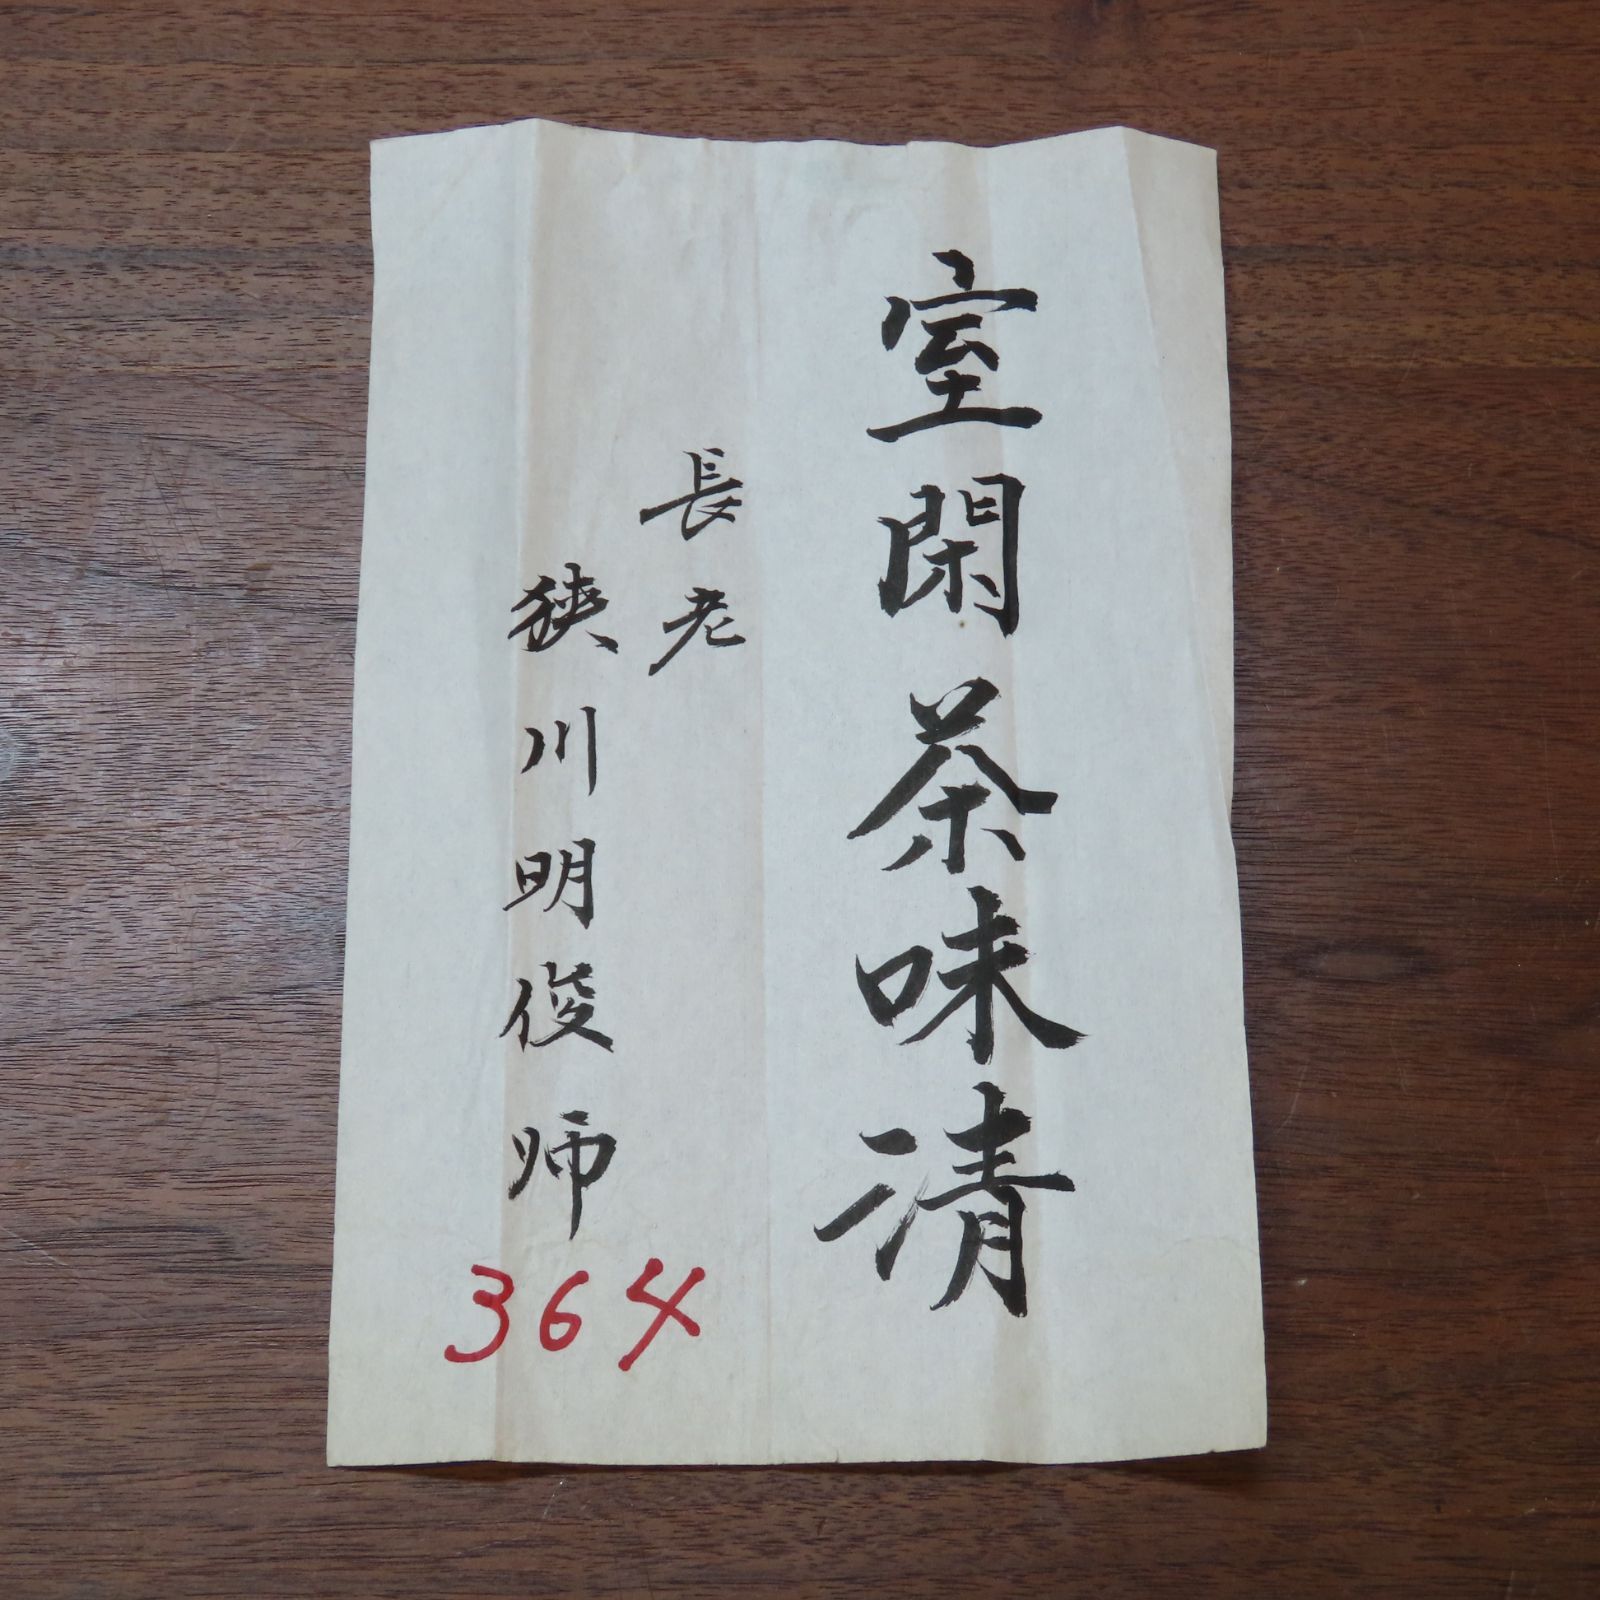 室閑茶味清
長老
狭川明俊師
364